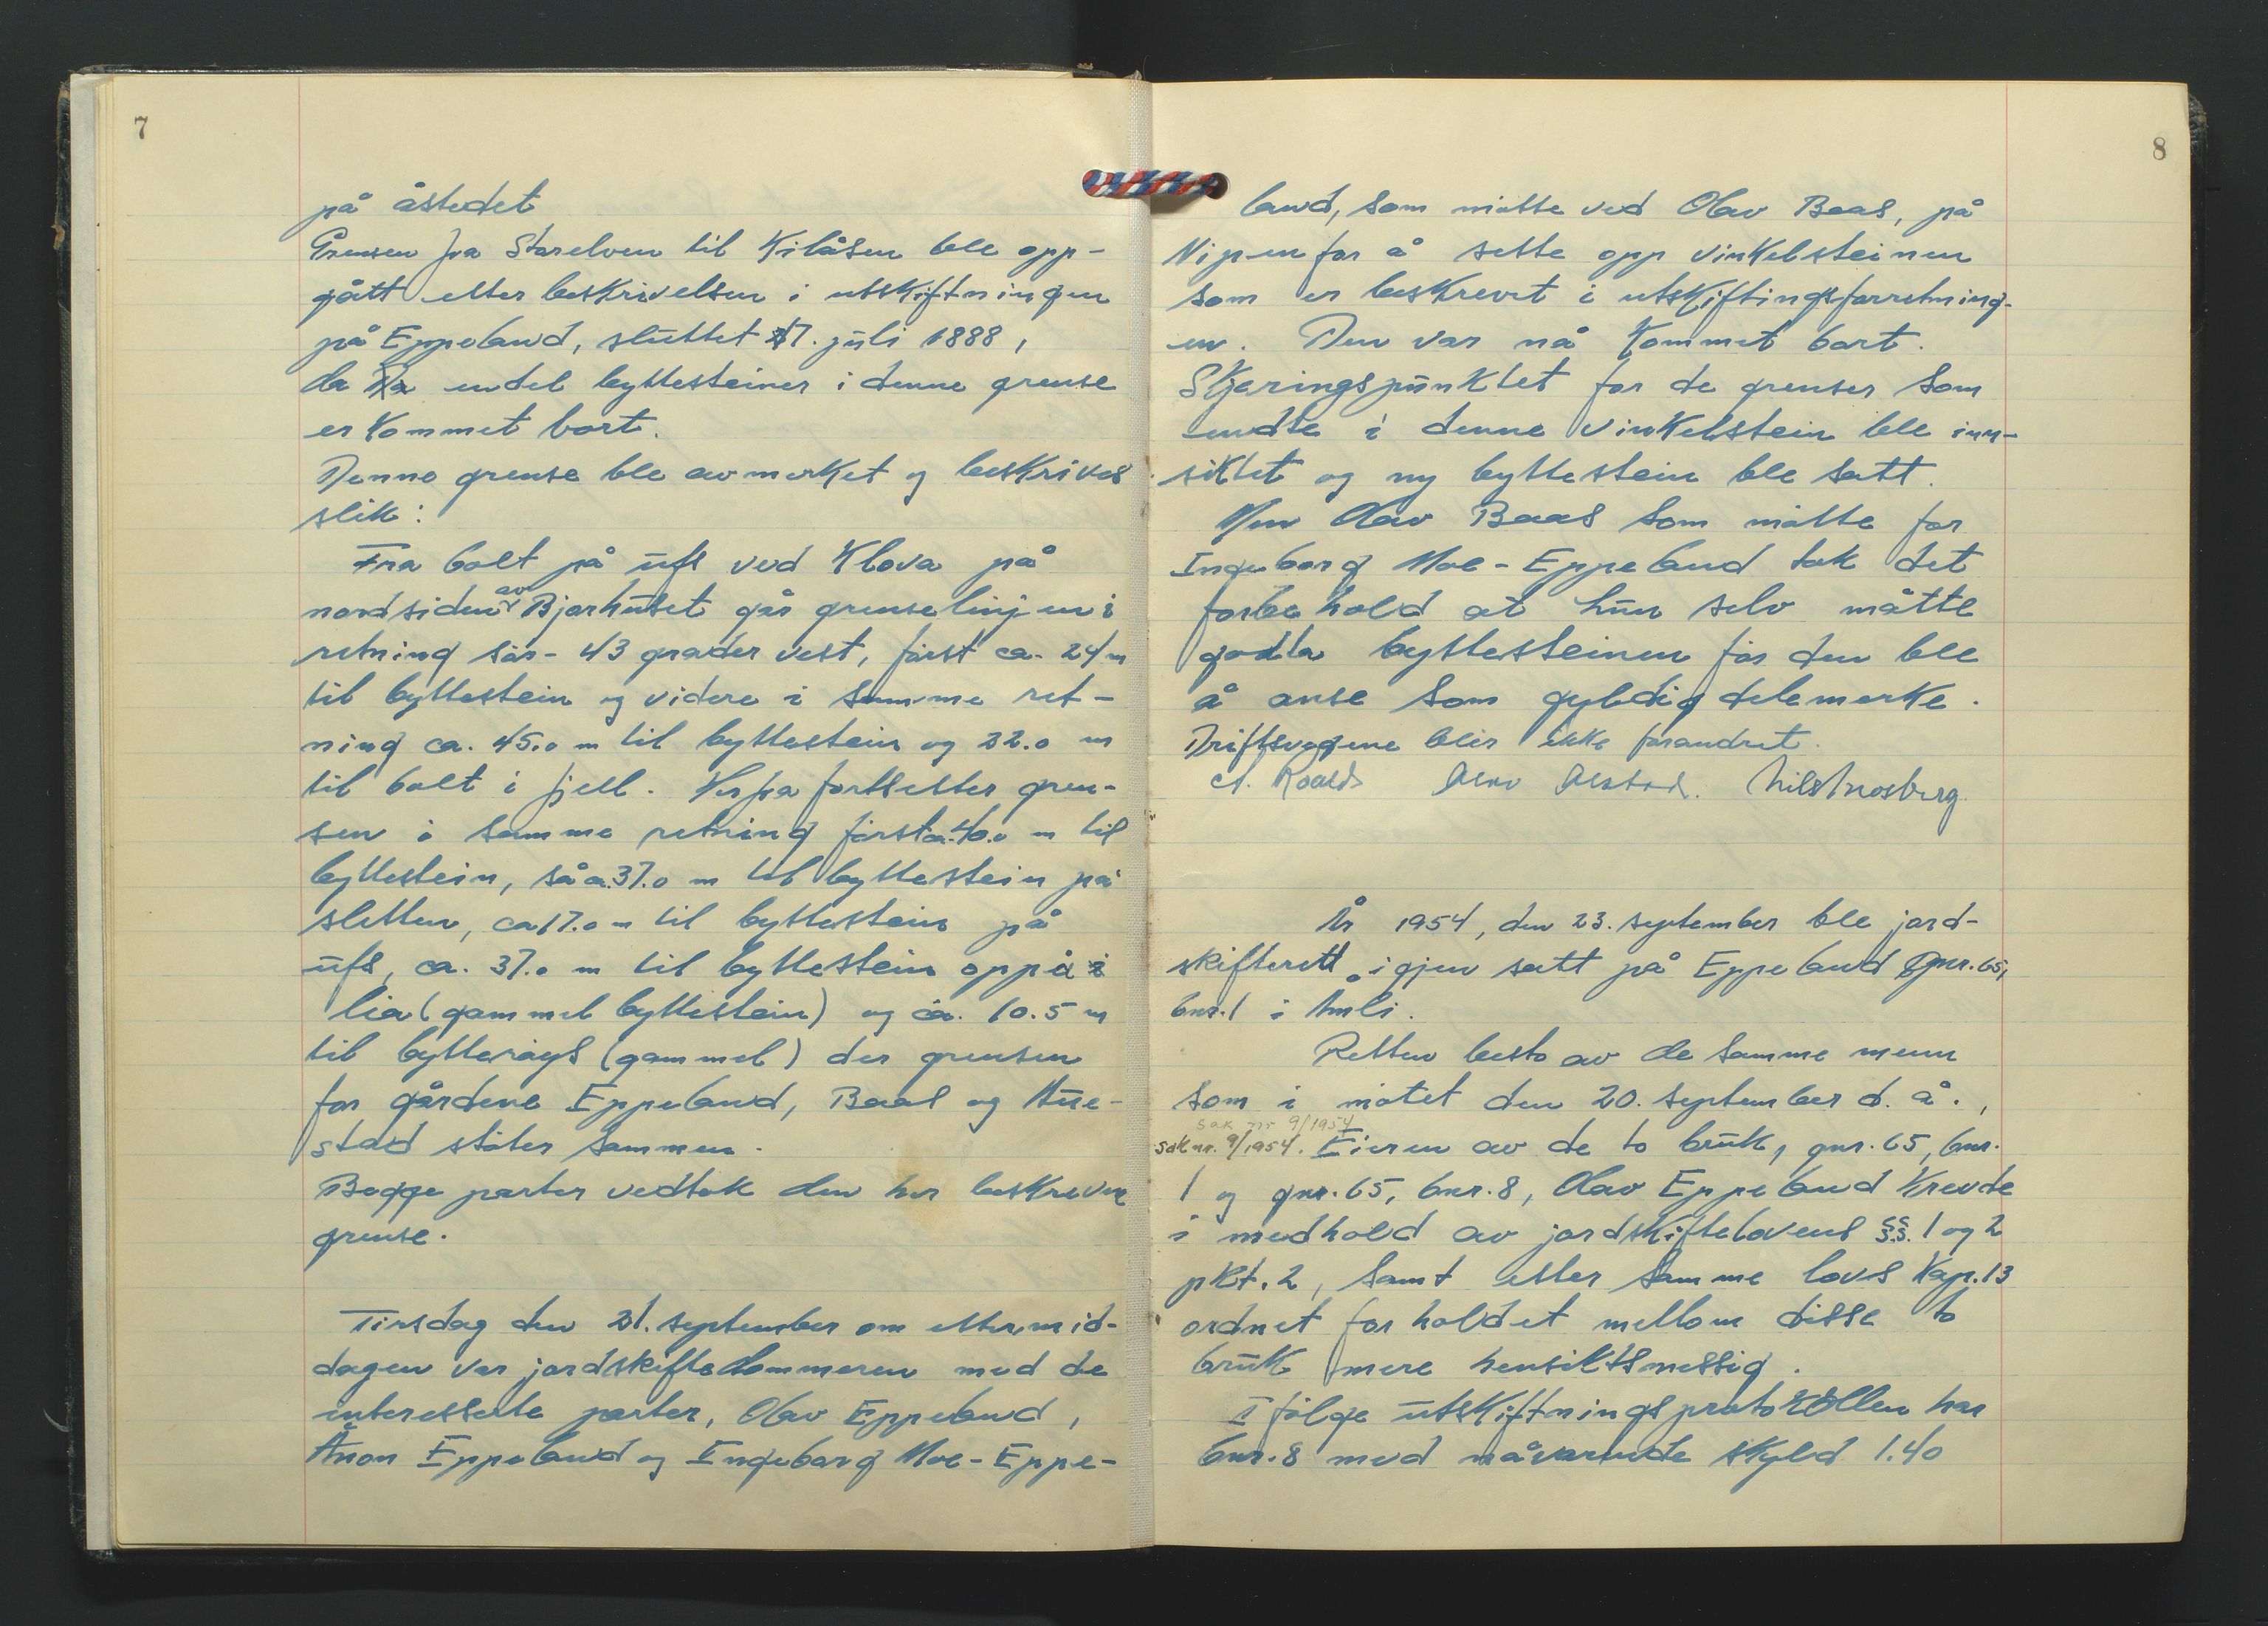 7
på åstedet
Grensen fra Storelven til Kilåsen ble opp-
gått etter beskrivelsen i utskiftningen
på Eppeland, sluttet 17. juli 1888,
da endel byttesteiner i denne grense
er kommet bort.
Denne grense ble avmerket og beskrives
slik:
Fra bolt på ufs ved Klova på
nordsiden av Bjørhuset går grenselinjen i
retning sør-43 grader vest, først ca. 24 m
til byttestein og videre i samme ret-
ning ca. 45.0 m til byttestein og 32.0 m
til bolt i fjell. Herfra fortsetter gren-
sen i samme retning først ca. 40.0 m til
byttestein, så ca. 37.0 m til byttestein på
sletten, ca 17.0 m til byttestein på
ufs, ca. 37.0 m til byttestein oppå i
lia (gammel byttestein) og ca. 10.5 m
til bytterøys (gammel) der grensen
for gårdene Eppeland, Baas og Aure-
stad støter sammen.
Begge parter vedtok den her beskreven
grense.
Tirsdag den 21. september om ettermid-
dagen var jordskiftedommeren med de
interesserte parter, Olav Eppeland,
Ånon Eppeland og Ingeborg Moe-Eppe-
8
land, som møtte ved Olav Baas, på
Nipen for å sette opp vinkelsteinen
som er beskrevet i utskiftingsforretning-
en. Den var nå kommet bort.
Skjæringspunktet for de grenser som
endte i denne vinkelstein ble inn-
siktet og ny byttestein ble satt.
Men Olav Baas som møtte for
Ingeborg Moe-Eppeland tok det
forbehold at hun selv måtte
godta byttesteinen før den ble
å anse som gyldig delemerke.
Driftsvegene blir ikke forandret.
A. Roalds Olav Nils Mosberg.
År 1954, den 23. september ble jord-
skifterett igjen satt på Eppeland gnr. 65,
bnr. 1 i Åmli.
Retten besto av de samme menn
som i møtet den 20. september d. å.,
sak nr 9/1954
sak nr. 9/1954. Eieren av de to bruk, gnr. 65, bnr.
1 og gnr. 65, bnr. 8, Olav Eppeland krevde
i medhold av jordskiftelovens §§. 1 og 2
pkt. 2, samt etter samme lovs kap. 13
ordnet forholdet mellom disse to
bruk mere hensiktsmessig.
I følge utskiftningsprotokollen har
bnr. 8 med nåværende skyld 1.40